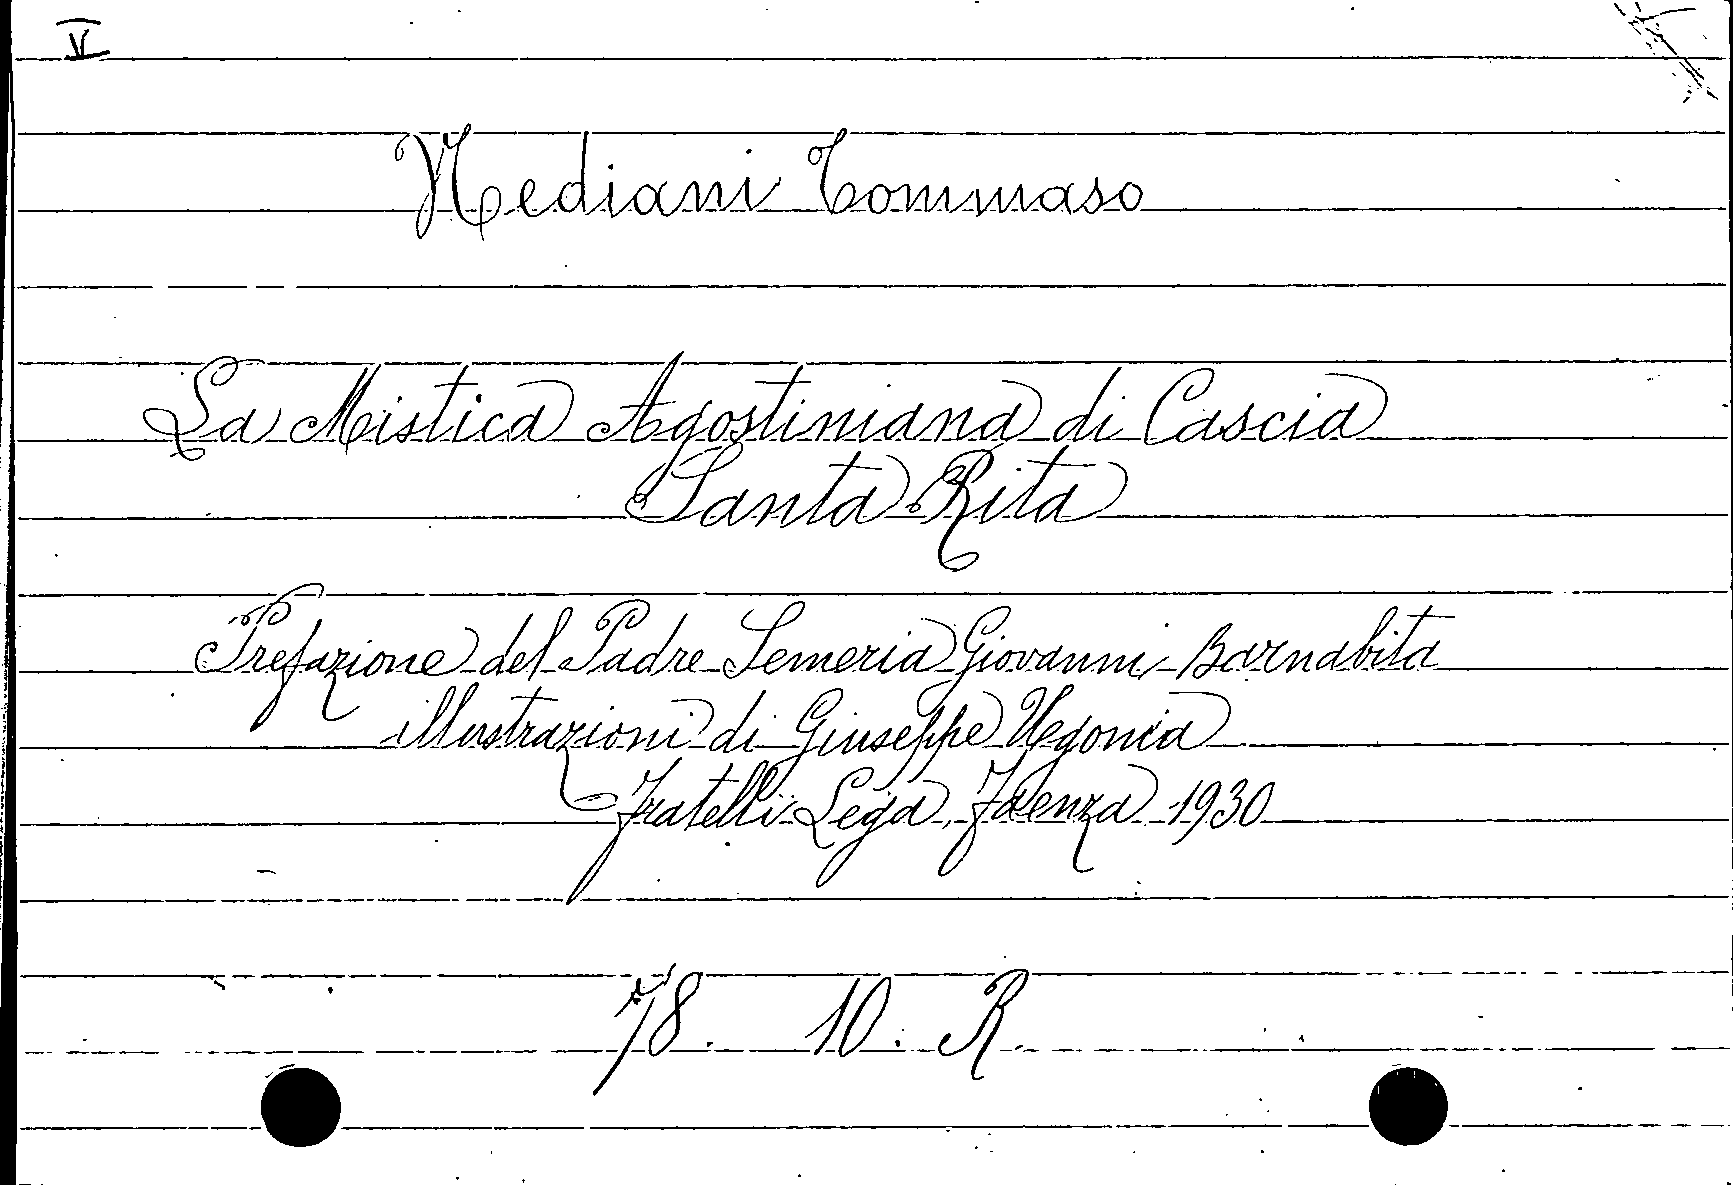 V
Nediani Tommaso
La Mistica Agostiniana di Cascia
Santa Rita
Prefazione del Padre Semeria Giovanni Barnabita
illustrazioni di Giuseppe Ugonia
Fratelli Lega, Faenza 1930
78. 10. R.